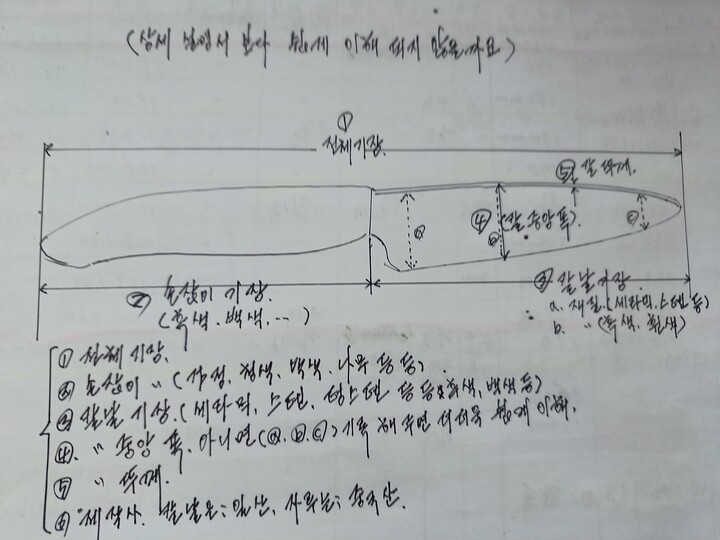 (상세 설명서 보다 쉽게 이해 되지 않을까요)
①
전체기장.
⑤ 칼 두께.
④ (칼 중앙 폭.)
ⓐ
ⓑ
ⓒ
② 손잡이 기장.
(흑색. 백색. …)
③ 칼날 기장.
a. 재질.(세라믹.스텐 등)
b. 〃 (흑색. 흰색)
① 전체 기장.
② 손잡이 〃 (검정, 청색, 백색, 나무 등 등).
③ 칼날 기장.(세라믹, 스텐, 등 등 흑색, 백색 등)
④. 〃 중앙 폭. 아니면 (ⓐ.ⓑ.ⓒ) 기록 해 주면 더더욱 쉽게 이해.
⑤ 〃 두께.
⑥ 제작사. 칼날은: 일산, 자루는: 중국산.